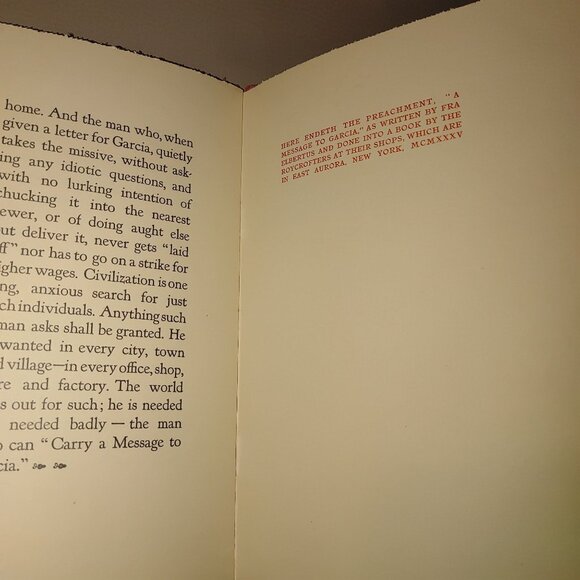 home. And the man who, when
given a letter for Garcia, quietly
takes the missive, without ask-
ing any idiotic questions, and
with no lurking intention of
chucking it into the nearest
ewer, or of doing aught else
ut deliver it, never gets "laid
ff" nor has to go on a strike for
igher wages. Civilization is one
ng, anxious search for just
ch individuals. Anything such
man asks shall be granted. He
wanted in every city, town
d village—in every office, shop,
re and factory. The world
s out for such; he is needed
needed badly — the man
o can "Carry a Message to
cia."
HERE ENDETH THE PREACHMENT, "A
MESSAGE TO GARCIA," AS WRITTEN BY FRA
ELBERTUS AND DONE INTO A BOOK BY THE
ROYCROFTERS AT THEIR SHOPS, WHICH ARE
IN EAST AURORA, NEW YORK, MCMXXXV